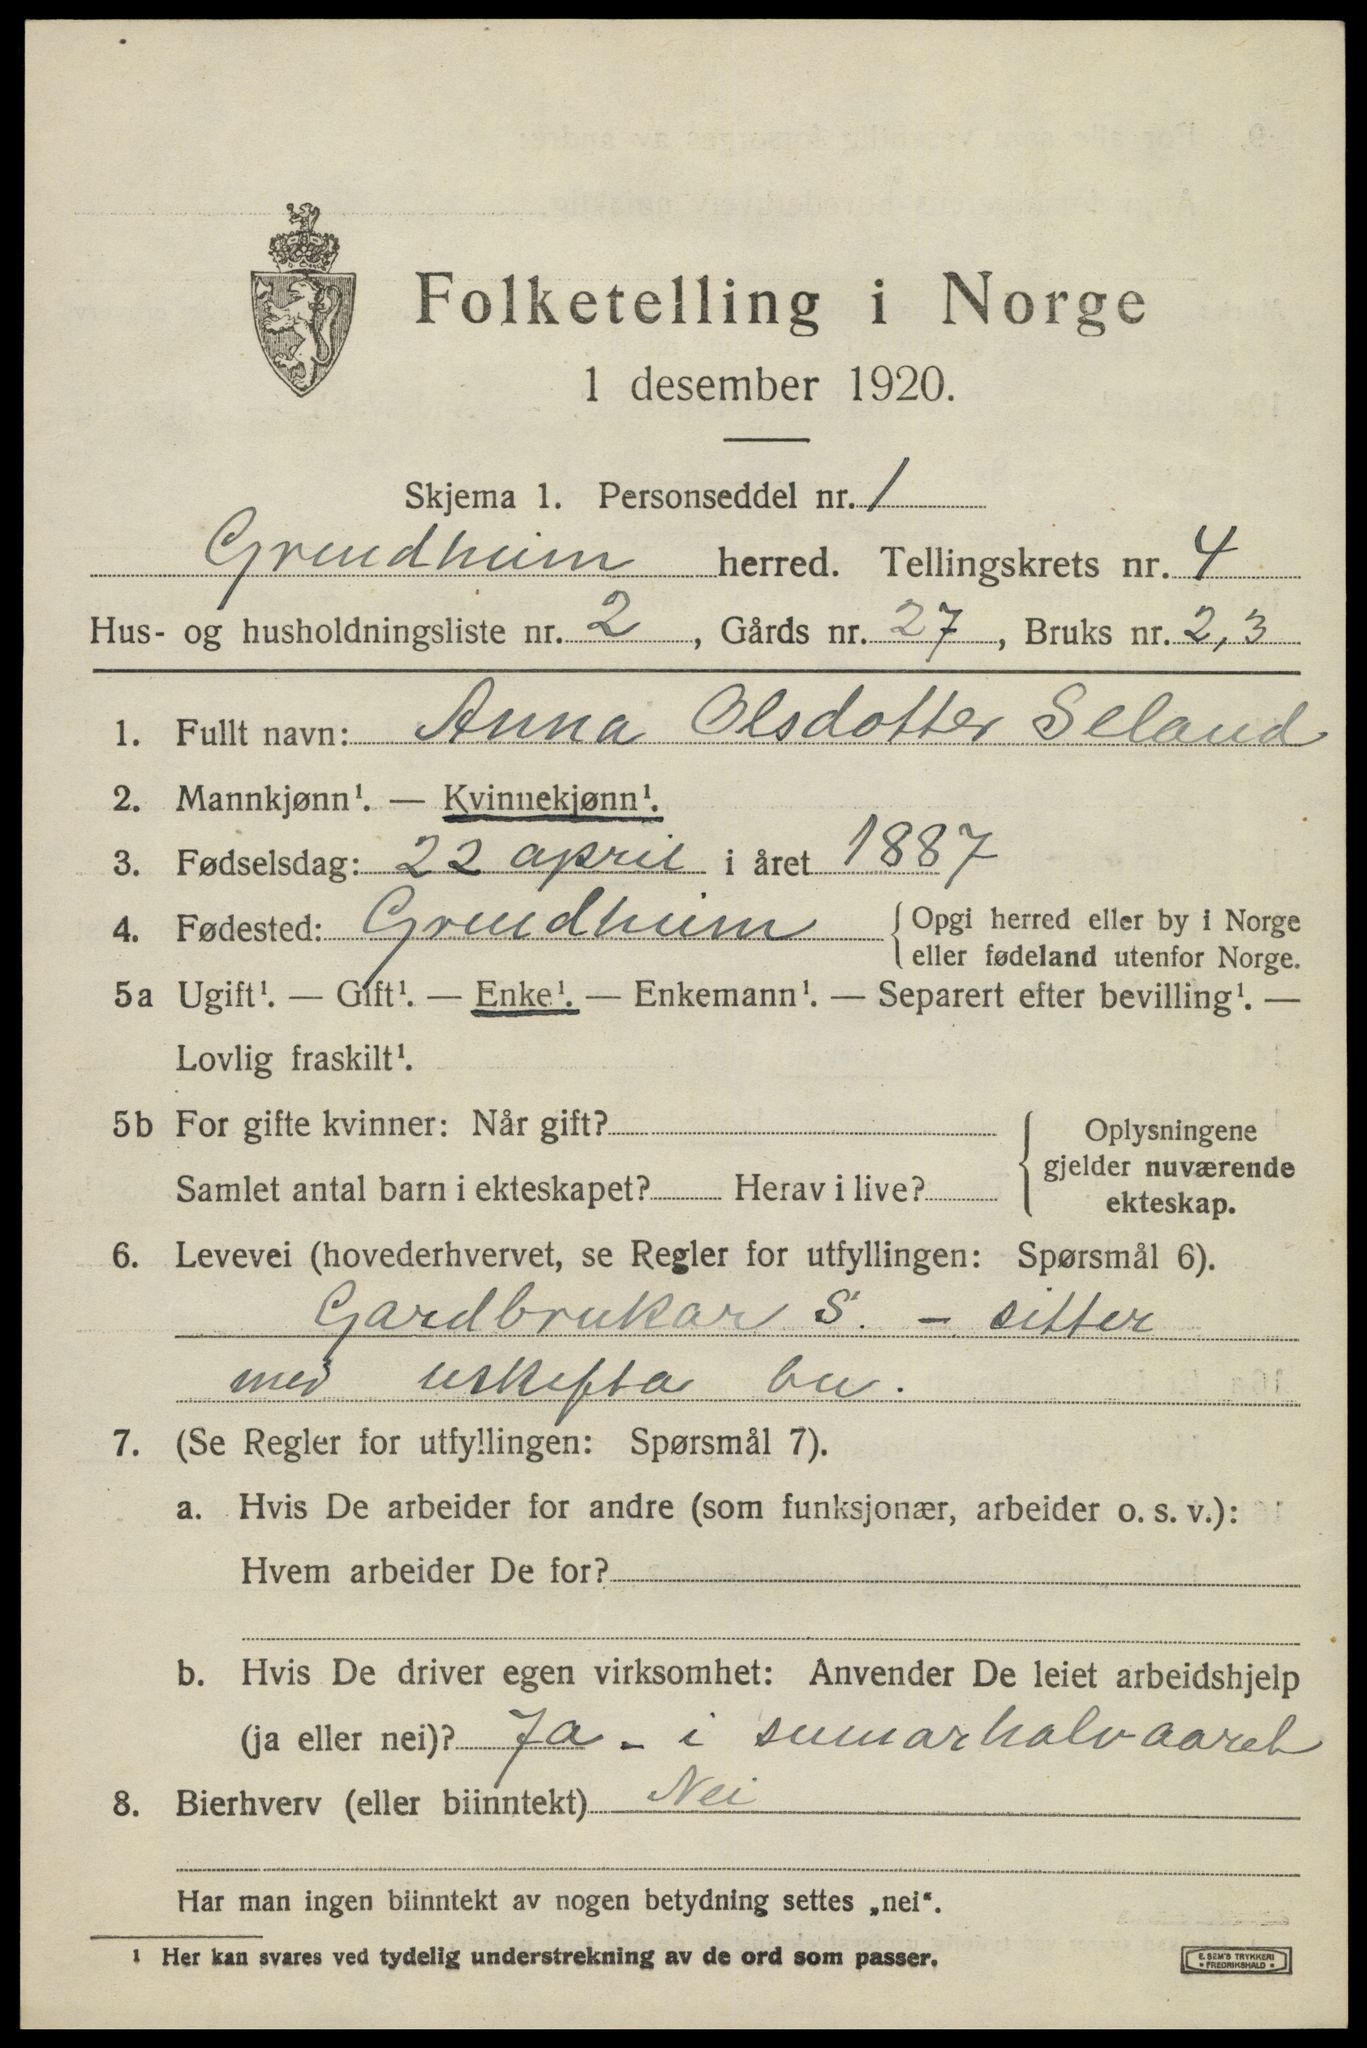 Folketelling i Norge
1 desember 1920.
Skjema 1. Personseddel nr. 1
Grindheim herred. Tellingskrets nr. 4
Hus- og husholdningsliste nr. 2, Gårds nr. 27, Bruks nr. 2,3
1. Fullt navn: Anna Olsdotter Seland
2. Mannkjønn¹. — Kvinnekjønn¹.
3. Fødselsdag: 22 april i året 1887
4. Fødested: Grindheim { Opgi herred eller by i Norge
eller fødeland utenfor Norge.
5a Ugift¹. — Gift¹. — Enke¹. — Enkemann¹. — Separert efter bevilling¹. —
Lovlig fraskilt¹.
5b For gifte kvinner: Når gift?
Samlet antal barn i ekteskapet? Herav i live?
{ Oplysningene
gjelder nuværende
ekteskap.
6. Levevei (hovederhvervet, se Regler for utfyllingen: Spørsmål 6).
Gardbrukar S. - sitter
med uskifta bu.
7. (Se Regler for utfyllingen: Spørsmål 7).
a. Hvis De arbeider for andre (som funksjonær, arbeider o. s. v.):
Hvem arbeider De for?
b. Hvis De driver egen virksomhet: Anvender De leiet arbeidshjelp
(ja eller nei)? Ja - i sumarhalvaaret
8. Bierhverv (eller biinntekt) Nei
Har man ingen biinntekt av nogen betydning settes „nei“.
¹ Her kan svares ved tydelig understrekning av de ord som passer.
E. SEM'S TRYKKERI
• FREDRIKSHALD •